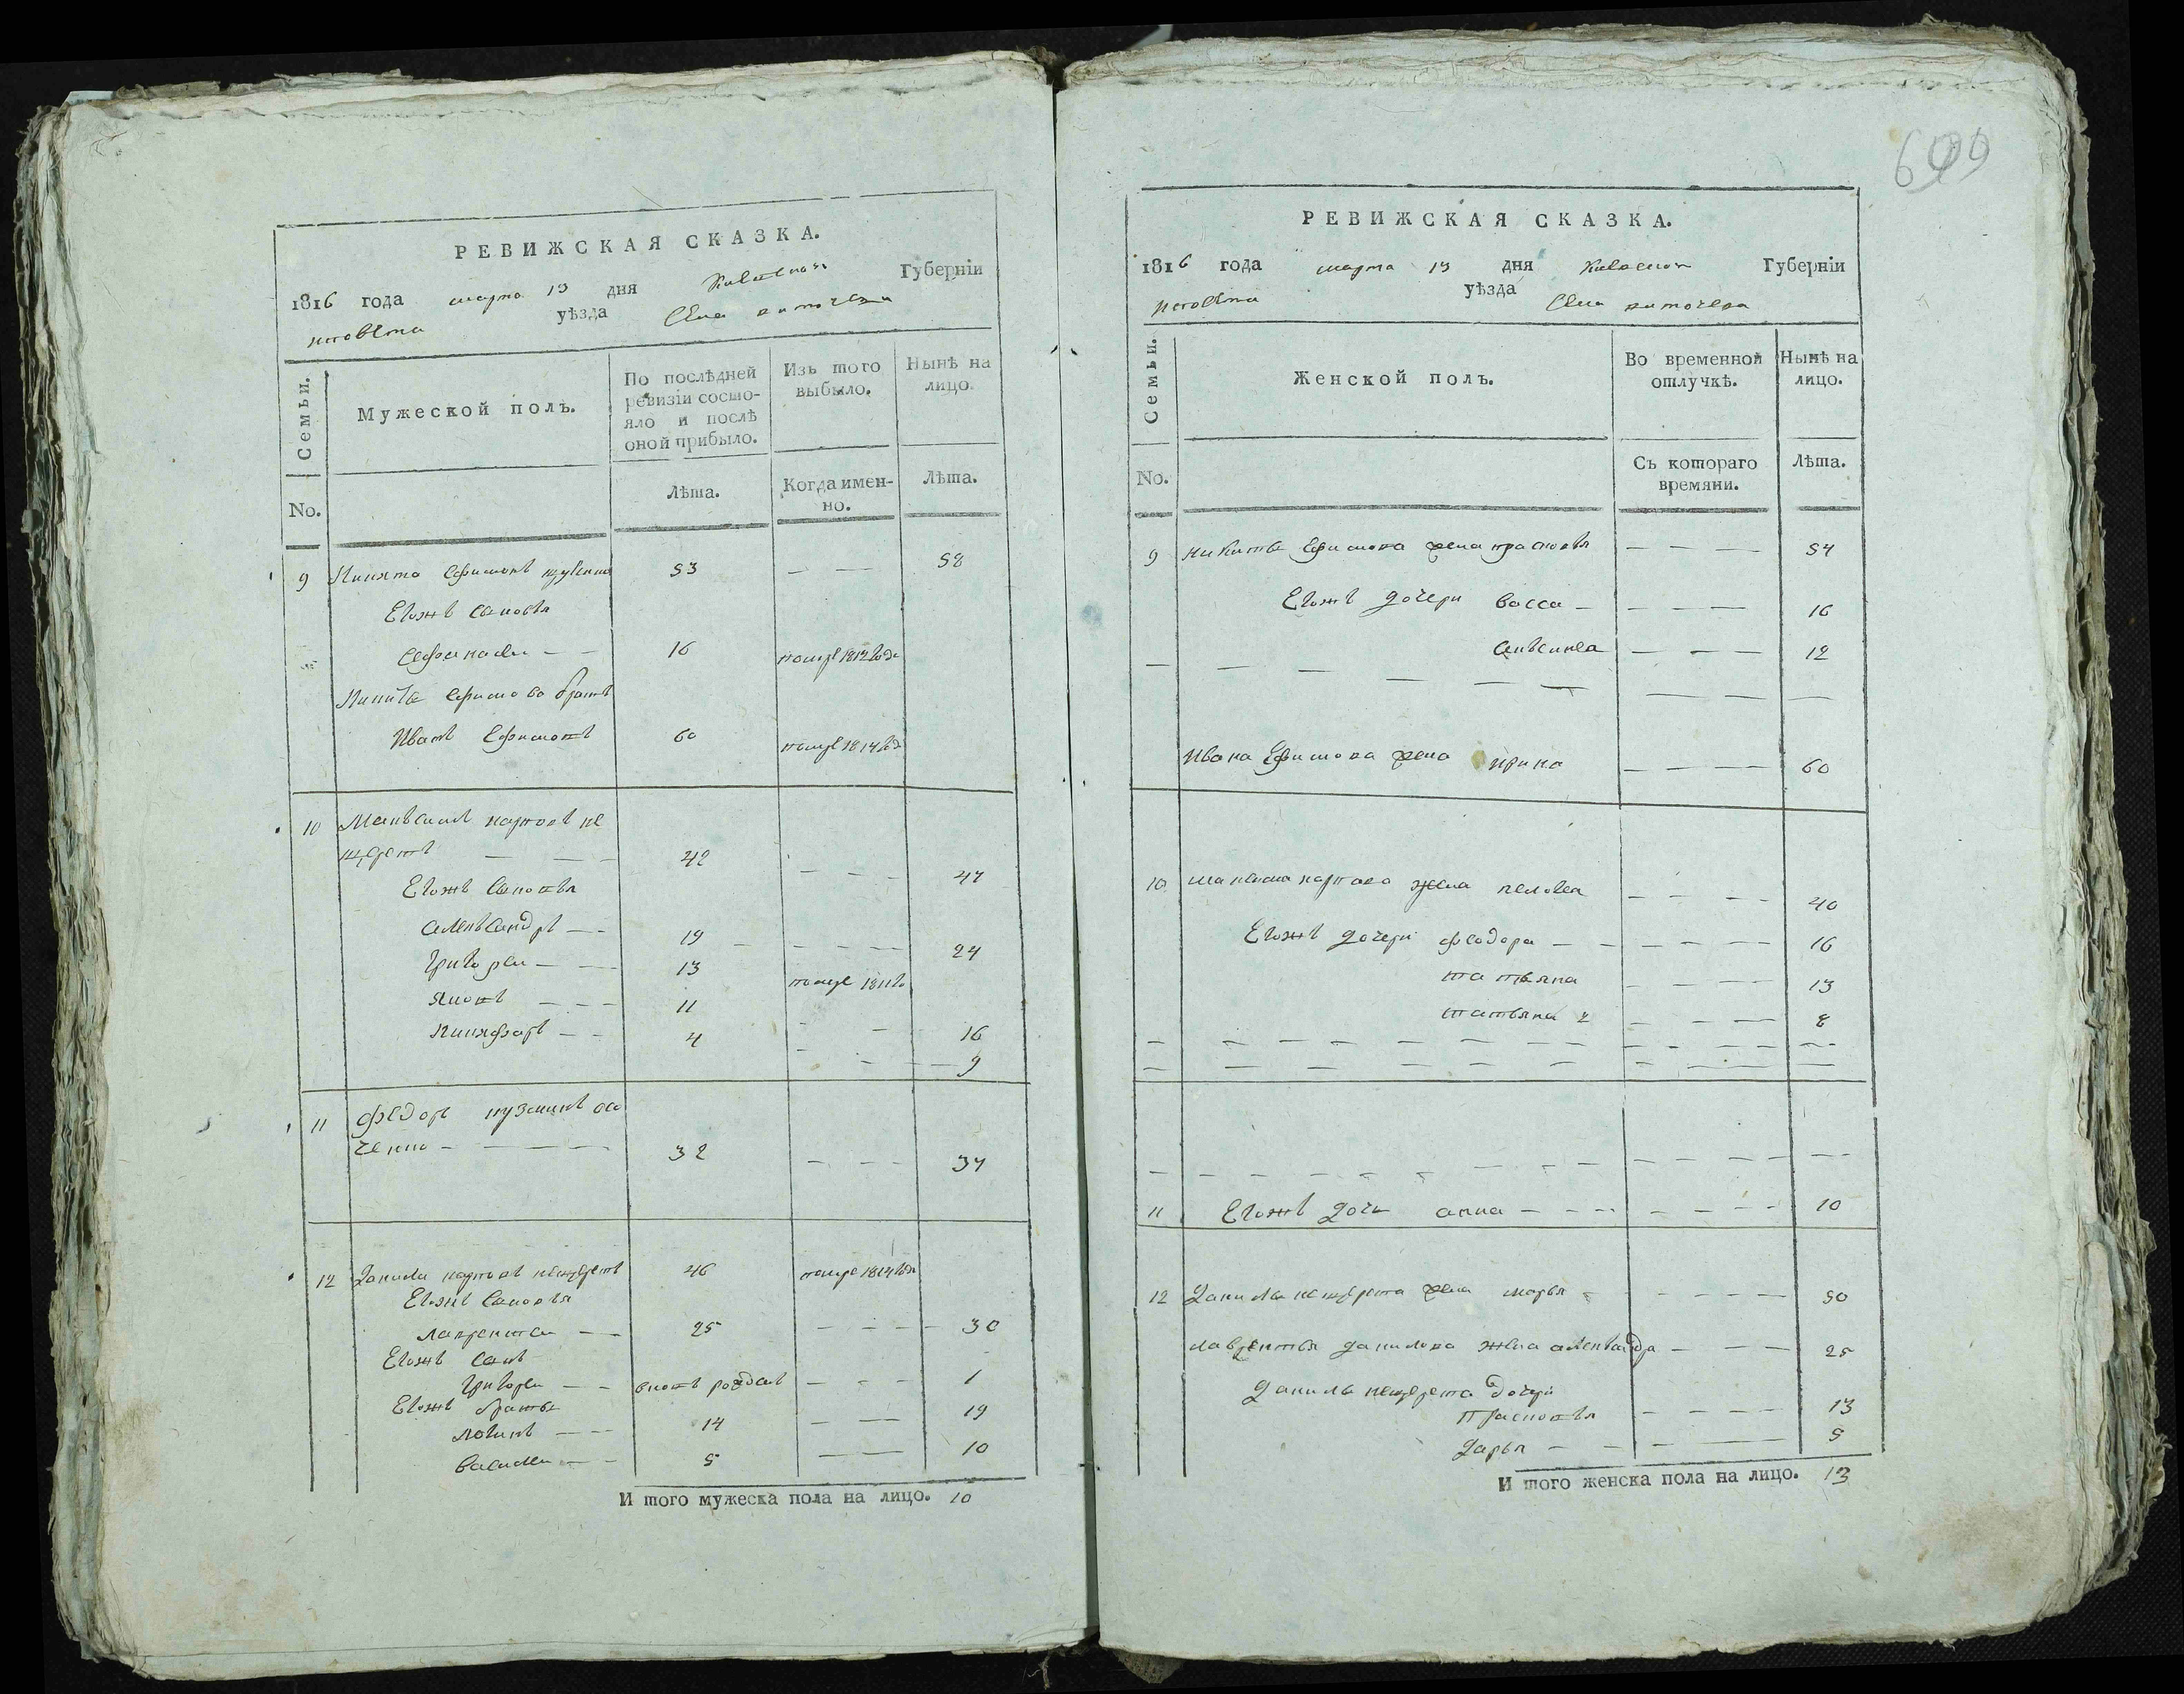 РЕВИЖСКАЯ СКАЗКА.
1816 года марта 13 дня Киевской Губерніи
повѣта уѣзда Села
Семьи. Мужеской полъ. По послѣдней ревизіи состояло и послѣ оной прибыло. Изъ того выбыло. Нынѣ на лицо.
No. Лѣта. Когда именно. Лѣта.
9 Никита Ефимовъ 53 — — 58
Егожъ сыновья
Афанасеи — — 16 помре 1812 года
Никиты Ефимова братъ
Иванъ Ефимовъ 60 помре 1814 год
10 Максимъ карповъ не
щеретъ — — — 42 — — — 47
Егожъ сыновья
александръ — — 19 — — — — 24
григореи — — 13 помре 1811 го
Яковъ — — — 11 — — 16
Никифоръ — — 4 — — — 9
11 Федоръ кузминъ
ченко — — — — 32 — — — 37
12 Данило карповъ нещеретъ 46 помре 1814 года
Егожъ сыновья
лаврентеи — — 25 — — — — 30
Егожъ сынъ
григореи — — вновь рожденъ — — — 1
Егожъ братья
логинъ — — — 14 — — 19
василеи — — 5 — — 10
И того мужеска пола на лицо. 10
600
РЕВИЖСКАЯ СКАЗКА.
1816 года марта 13 дня Киевской Губерніи
повѣта уѣзда Села
Семьи. Женской полъ. Во временной отлучкѣ. Нынѣ на лицо.
No. Съ котораго времяни. Лѣта.
9 Никиты Ефимова жена прасковья — — — 54
Егожъ дочери васса — — — — 16
аксинея — — — 12
Ивана Ефимова жена ирина — — — 60
10 максима карпова жена пелагея — — — — 40
Егожъ дочери феодора — — — — — 16
татьяна — — — — 13
татьяна 2 — — — 8
11 Егожъ дочь анна — — — — — — — 10
12 Данилы нещерета жена марья — — — — — — 50
лаврентья данилова жена александра — — — 25
Данилы нещерета дочери
Прасковья — — — — 13
Дарья — — — — 5
И того женска пола на лицо. 13